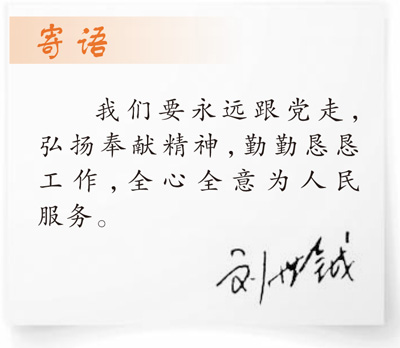 寄语
我们要永远跟党走，
弘扬奉献精神，勤勤恳恳
工作，全心全意为人民
服务。